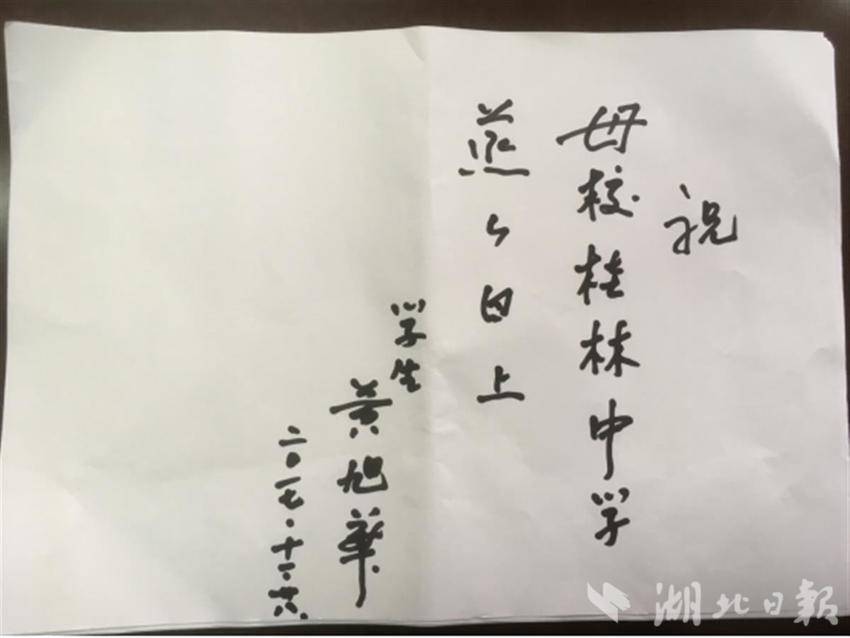 祝
母校桂林中学
蒸々日上
学生
黄旭華
二〇一七·十二·廿六
湖北日報